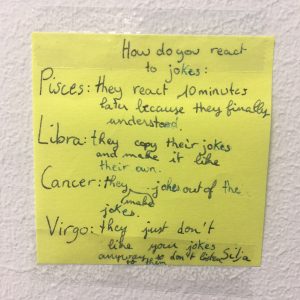 How do you react
to jokes:
Pisces: they react 10 minutes
later because they finally
understood.
Libra: they copy their jokes
and make it like
their own.
Cancer: they make jokes out of the
jokes.
Virgo: they just don't
like your jokes
anyways so don't listen
to them
Sila